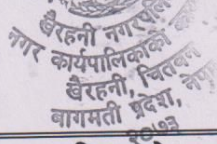 खैरहनी नगरपालिका
नगर कार्यपालिकाको
खैरहनी, चितवन
बागमती प्रदेश, नेपाल
२०७३